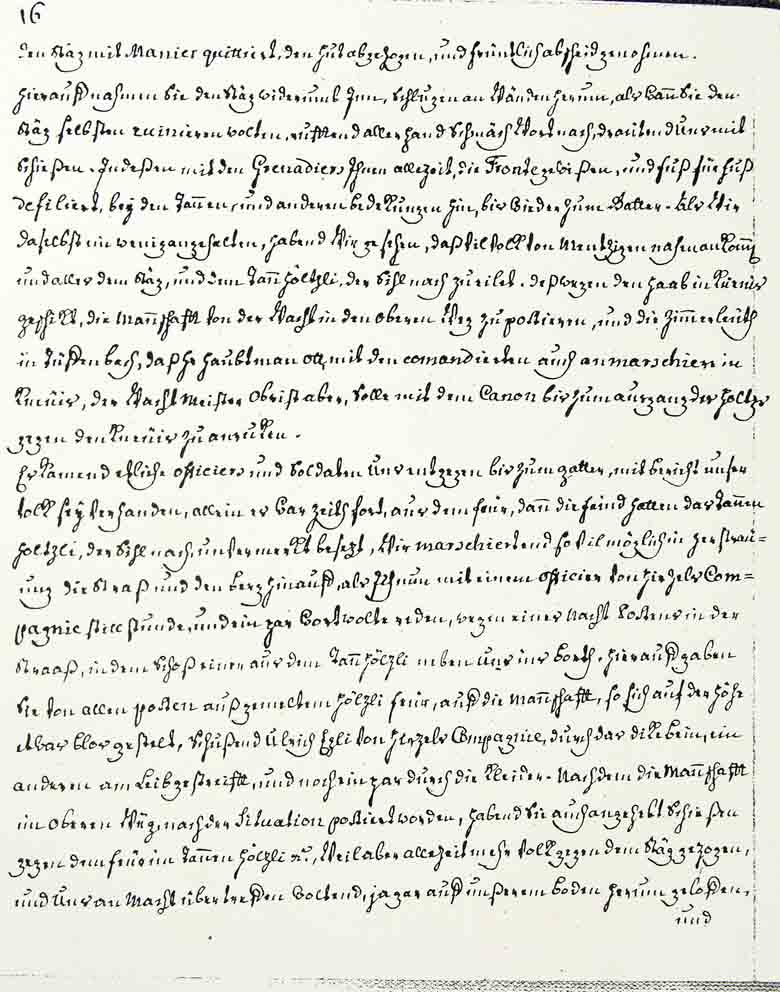 16
den Stäg mit Manier quittiert, den Hut abgezogen, und früntlich abscheid genohmen.
Hierauff nahmen Sie den Stäg widerumb Inn, Schlugen an Wänden herum, als wan Sie den
Stäg selbsten ruinieren wolten, rufftend allerhand Schmäch Wort nach, drauten d uns mit
schießen. Indeßen mit den Grenadiers Ihnen allezeit, die Fronte gewißen, und fuß für fuß
defiliert, bey den Tannen, und anderen bedekungen hin, bis wieder zum Gatter. Als Wir
daselbst ein wenig angehalten, habend Wir gesehen, daß vil Volk von Mentzigen nahen an kom̄t
und alles dem Stäg, und dem Tan̄höltzli, der Sihl nach zu eilet. deßwegen den haab in
geschikt, die Man̄schafft von der Wacht in den oberen Weg zu postieren, und die Zimerleuth
in daß Hr Haubtman Ott, mit den comandierten auch anmarschiere in
der Wacht Meister Obrist aber, solle mit dem Canon bis zum ausgang des Holtzes
gegen den zu anruken.
Es kamend etliche officiers und Soldaten uns entgegen bis zum gatter, mit bericht unser
Volk sey verhanden, allein es war zeith fort, aus dem feür, dann die feind hatten das Tannen
höltzli, der Sihl nach, unvermerkt besezt, Wir marschiertend so vil möglich in zerstrau=
ung die Straß und den berg hinauff, als Ich nun mit einem officier von Hirzels Com=
pagnie still stunde, und ein par Wort wolte reden, wegen eines Wacht Postens in der
Straaß, in dem schoß einer aus dem Tan̄ hölzli neben uns ins borth. Hierauff gaben
Sie von allen posten auß gemeltem hölzli feür, auff die Man̄schafft, so sich auf der höhe
etwas blos gestelt, schußend Ulrich Egli von Hirzels Compagnie, durch das dike bein, ein
anderen am Leib gestreifft, und noch ein par durch die Kleider. Nachdem die Man̄schafft
im oberen Weg, nach der Situation postiert worden, habend Sie auch angehebt schießen
gegen dem feür im Tannen hölzli &c., Weil aber allezeit mehr Volk gegen dem Stäg gezogen,
und uns an Macht übertreffen woltend, ja gar auff unßerem boden herum geloffen,
und